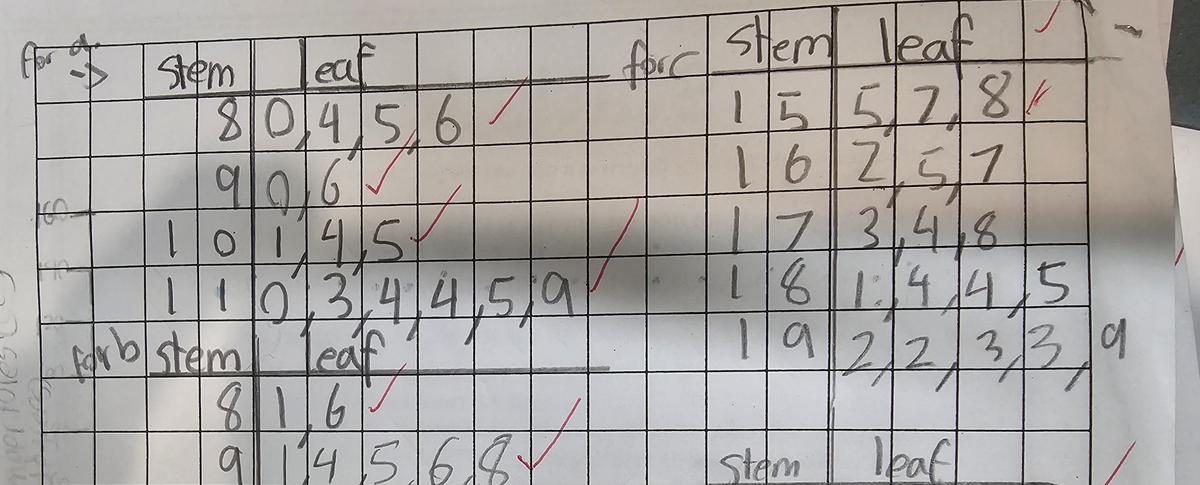 for a. stem leaf
8 0,4,5,6
9 0,6
1 0 1,4,5
1 1 0,3,4,4,5,9
for b stem leaf
8 1,6
9 1,4,5,6,8
for c stem leaf
1 5 5,7,8
1 6 2,5,7
1 7 3,4,8
1 8 1,4,4,5
1 9 2,2,3,3,9
stem leaf